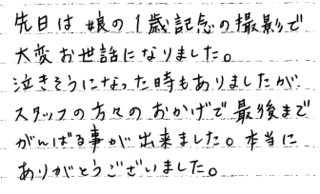 先日は娘の1歳記念の撮影で
大変お世話になりました。
泣きそうになった時もありましたが、
スタッフの方々のおかげで最後まで
がんばる事が出来ました。本当に
ありがとうございました。